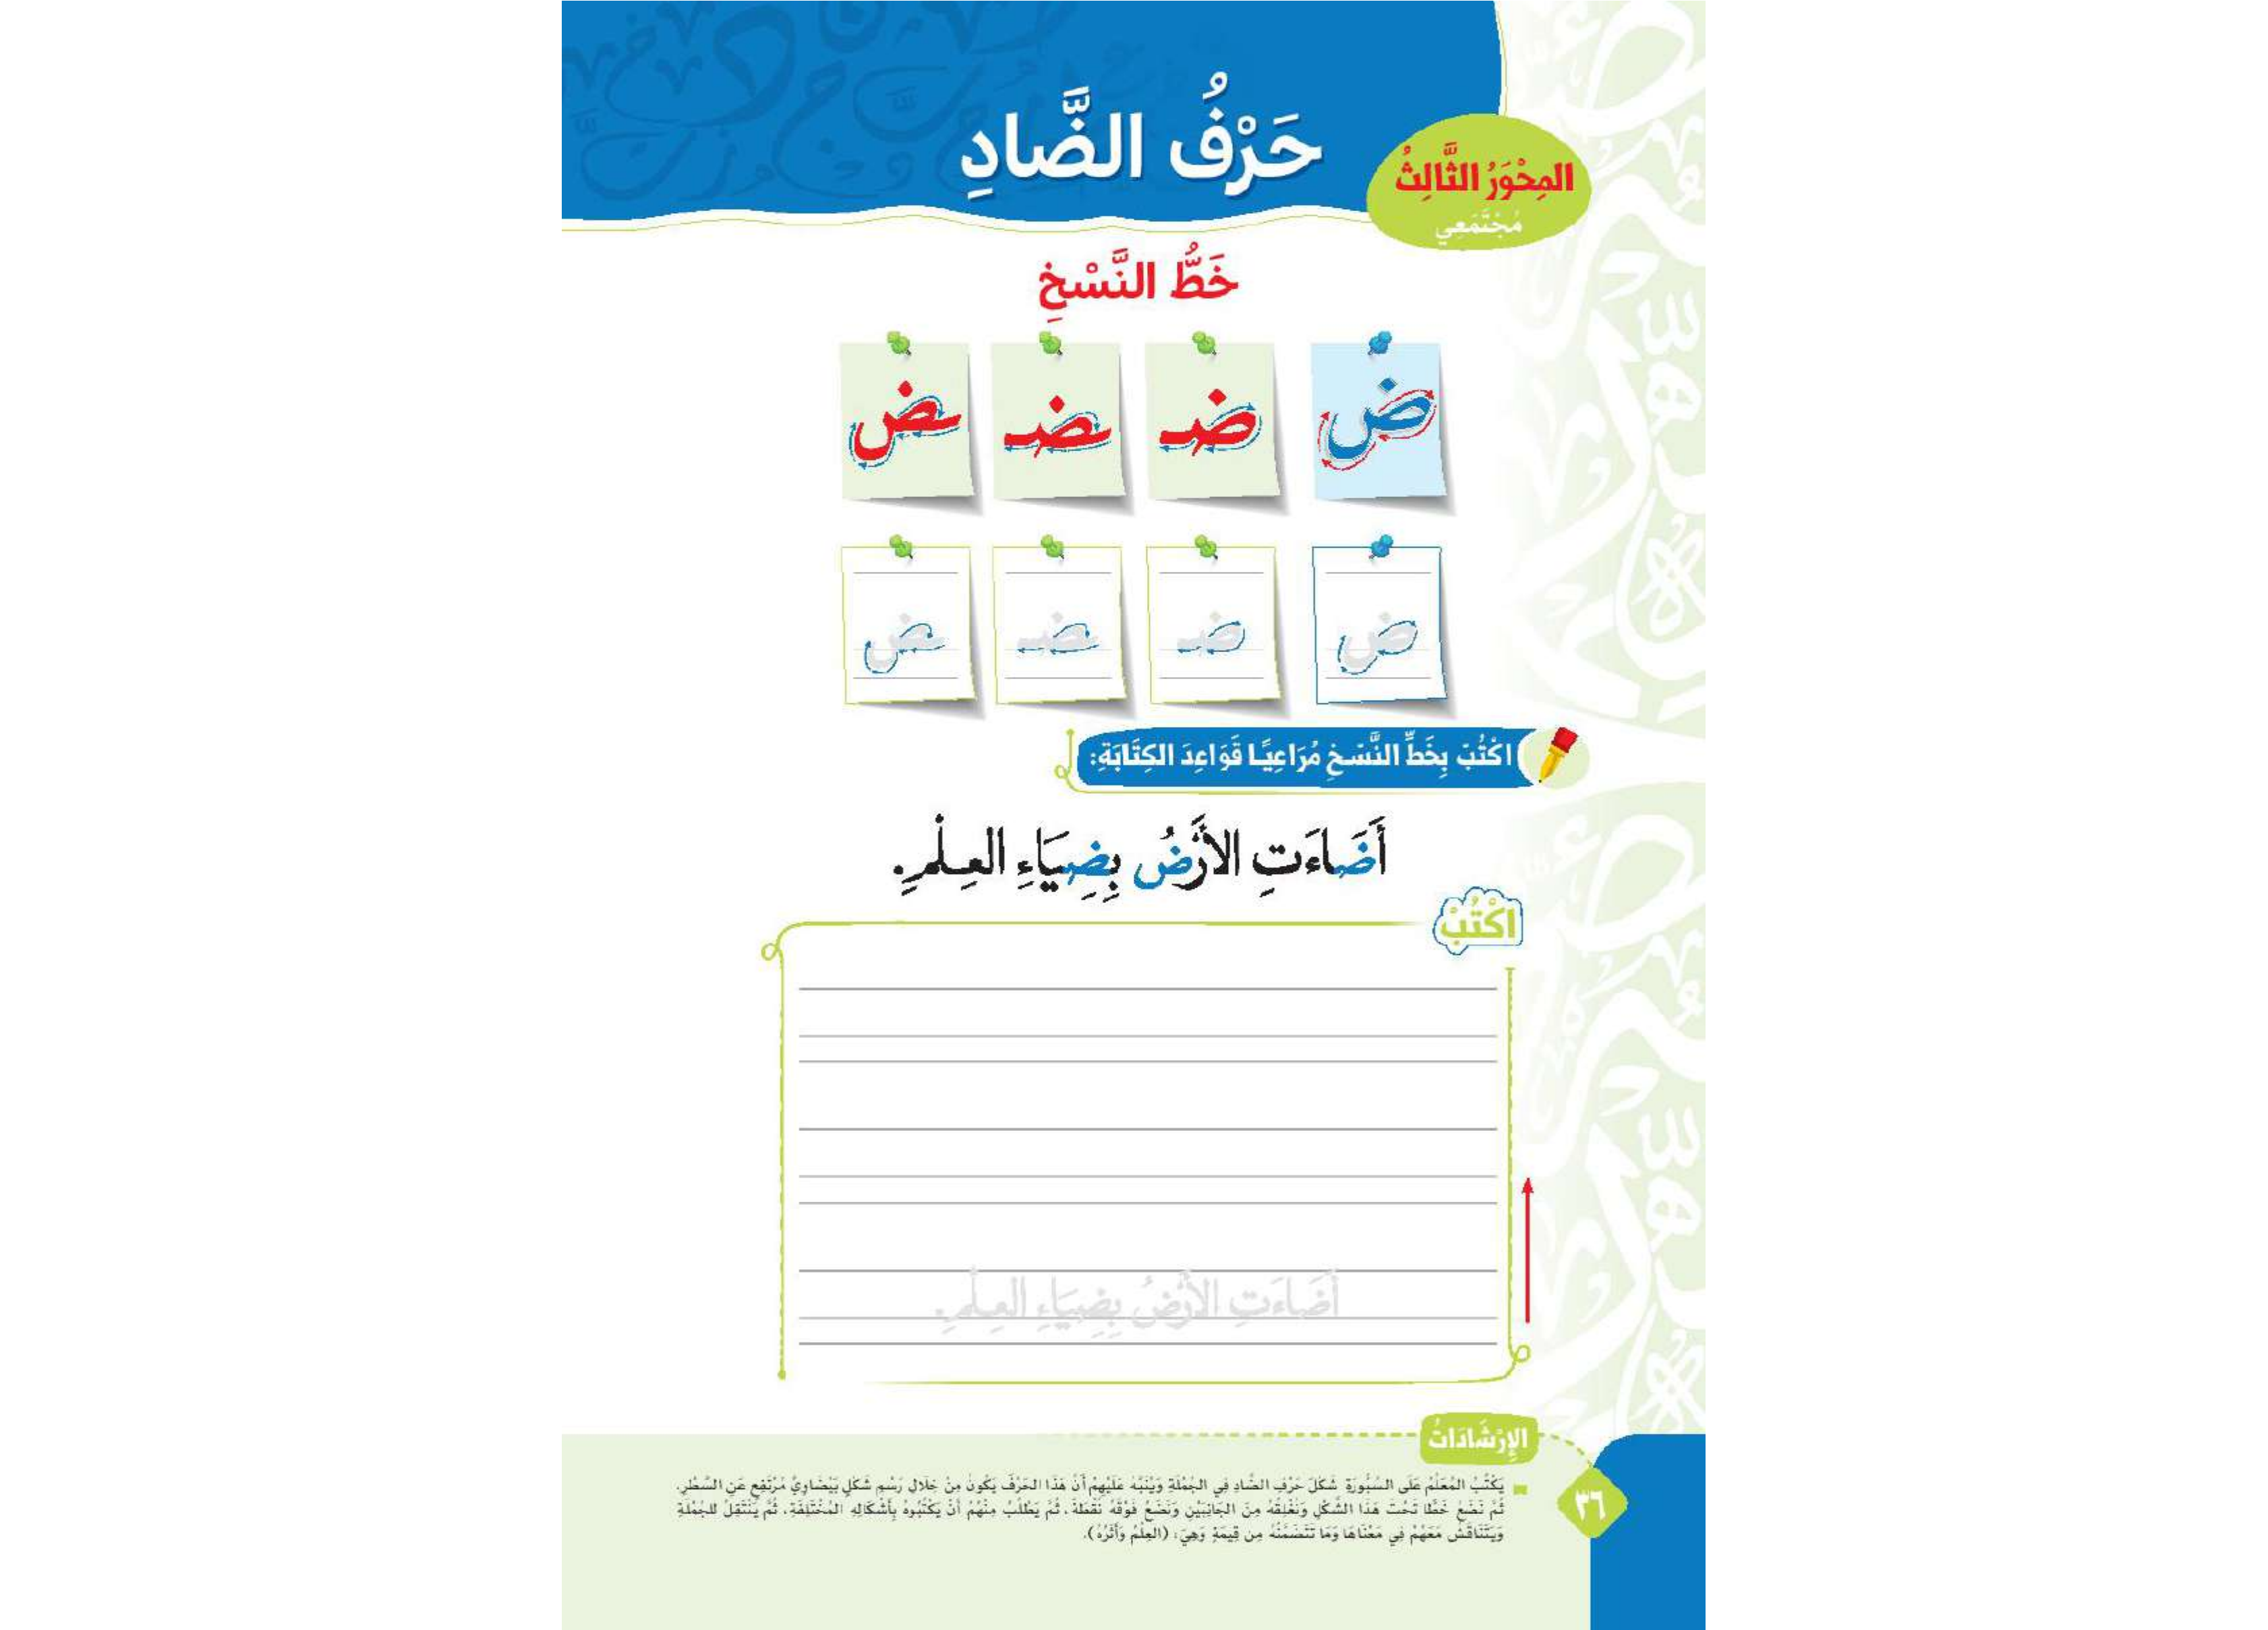 حَرْفُ الضَّادِ
المِحْوَرُ الثَّالِثُ
مُجْتَمَعِي
خَطُّ النَّسْخِ
ض ضـ ـضـ ـض
ض ضـ ـضـ ـض
اكْتُبْ بِخَطِّ النَّسْخِ مُرَاعِيًا قَوَاعِدَ الكِتَابَةِ:
أَضَاءَتِ الأَرْضُ بِضِيَاءِ العِلْمِ.
اكْتُبْ
أَضَاءَتِ الأَرْضُ بِضِيَاءِ العِلْمِ.
الإِرْشَادَاتُ
يَكْتُبُ المُعَلِّمُ عَلَى السَّبُّورَةِ شَكْلَ حَرْفِ الضَّادِ فِي الجُمْلَةِ وَيُنَبِّهُ عَلَيْهِمْ أَنَّ هَذَا الحَرْفَ يَكُونُ مِنْ خِلَالِ رَسْمِ شَكْلٍ بَيْضَاوِيٍّ مُرْتَفِعٍ عَنِ السَّطْرِ،
ثُمَّ نَضَعُ خَطًّا تَحْتَ هَذَا الشَّكْلِ وَنُغْلِقُهُ مِنَ الجَانِبَيْنِ وَنَضَعُ فَوْقَهُ نُقْطَةً، ثُمَّ يَطْلُبُ مِنْهُمْ أَنْ يَكْتُبُوهُ بِأَشْكَالِهِ المُخْتَلِفَةِ، ثُمَّ يَنْتَقِلُ للجُمْلَةِ
وَيَتَنَاقَشُ مَعَهُمْ فِي مَعْنَاهَا وَمَا تَتَضَمَّنُهُ مِن قِيمَةٍ وَهِيَ: (العِلْمُ وَأَثَرُهُ).
٣٦